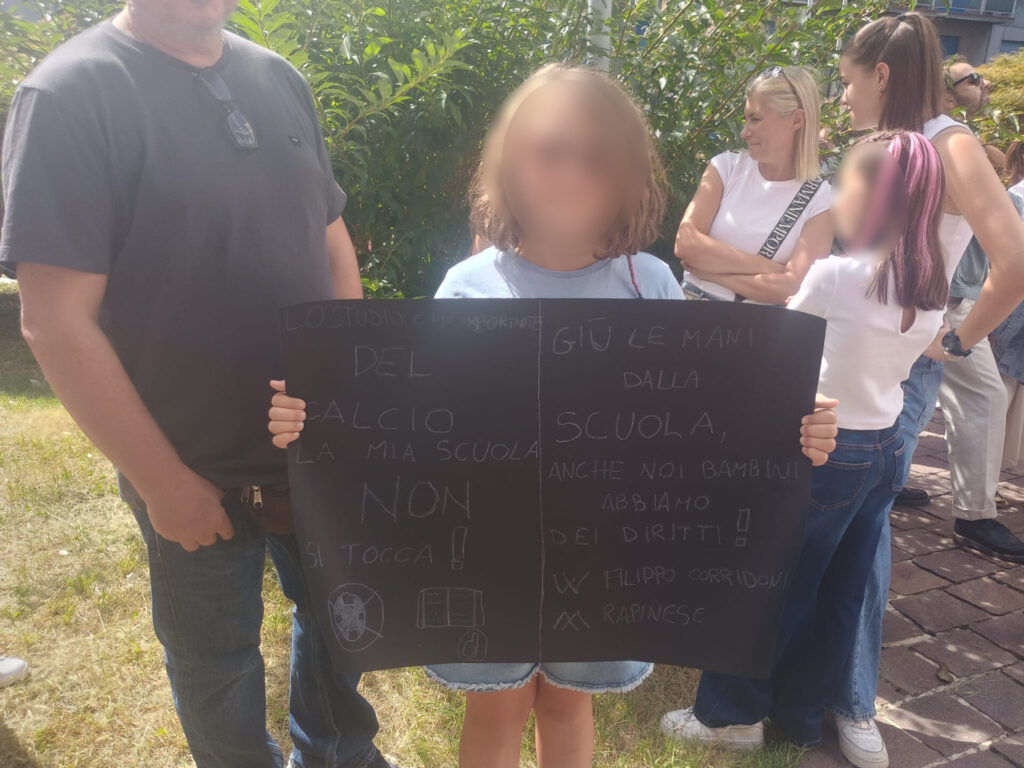 LO STUDIO È PIÙ IMPORTANTE
DEL
CALCIO
LA MIA SCUOLA
NON
SI TOCCA!
GIÙ LE MANI
DALLA
SCUOLA,
ANCHE NOI BAMBINI
ABBIAMO
DEI DIRITTI!
W FILIPPO CORRIDONI
M RAPINESE